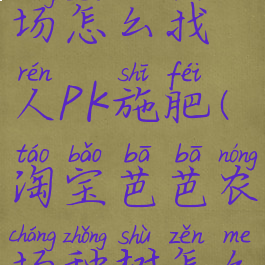 场怎么找
rén shī féi
人PK施肥(
táo bǎo bā bā nóng
淘宝芭芭农
cháng zhǒng shù zěn me
场种树怎么